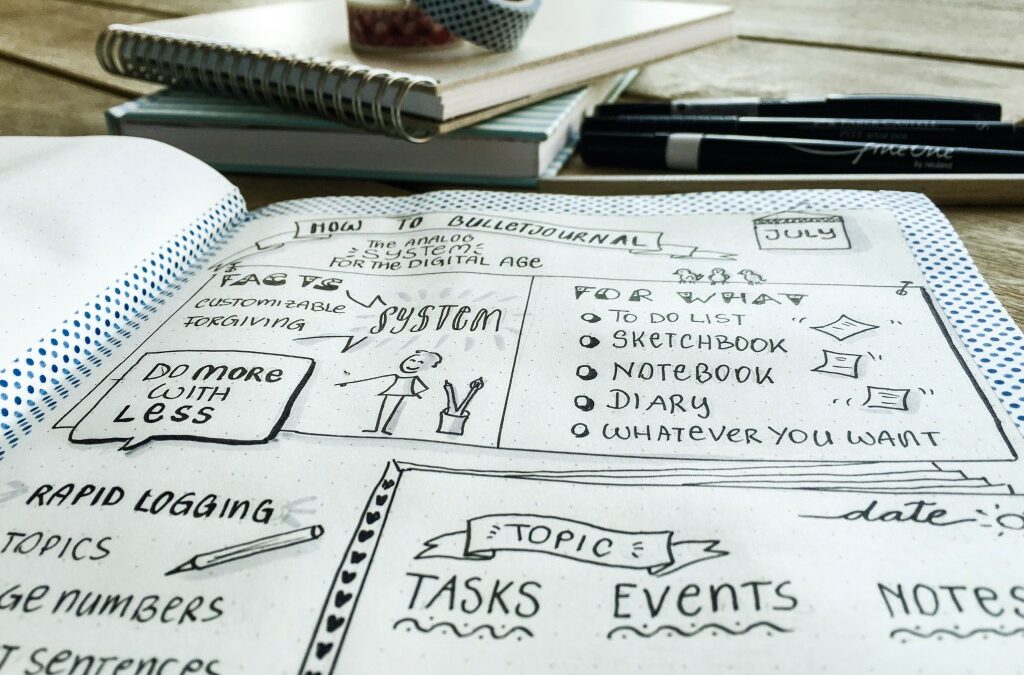 HOW TO BULLETJOURNAL
THE ANALOG
SYSTEM
FOR THE DIGITAL AGE
JULY
FACTS
CUSTOMIZABLE
FORGIVING
SYSTEM
DO MORE
WITH
LESS
FOR WHAT
TO DO LIST
SKETCHBOOK
NOTEBOOK
DIARY
WHATEVER YOU WANT
RAPID LOGGING
TOPICS
GE NUMBERS
T SENTENCES
date
TOPIC
TASKS EVENTS NOTES
fineOne
by neuland